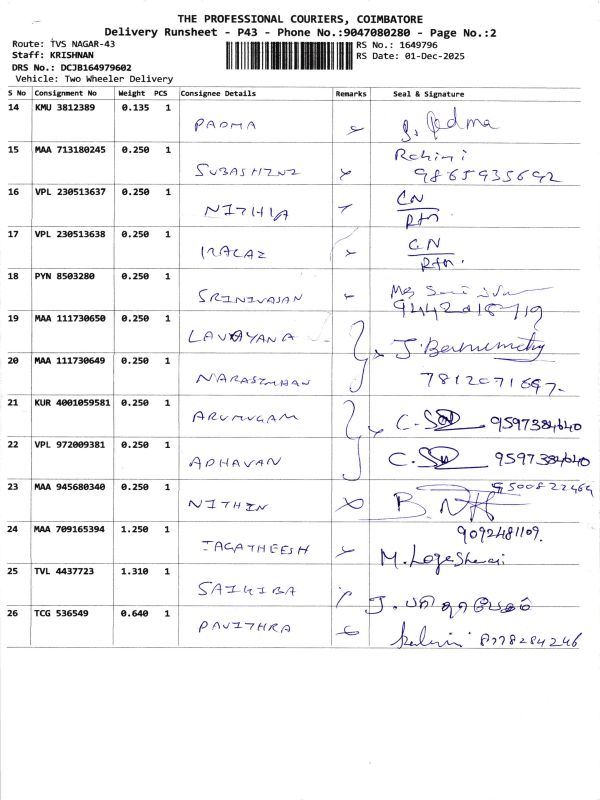 THE PROFESSIONAL COURIERS, COIMBATORE
Delivery Runsheet - P43 - Phone No.:9047080280 - Page No.:2
Route: TVS NAGAR-43 RS No.: 1649796
Staff: KRISHNAN RS Date: 01-Dec-2025
DRS No.: DCJB164979602
Vehicle: Two Wheeler Delivery
S No Consignment No Weight PCS Consignee Details Remarks Seal & Signature
14 KMU 3812389 0.135 1 PADMA
15 MAA 713180245 0.250 1 Rohini
9865935692
16 VPL 230513637 0.250 1 NITHIA CN
Rtn.
17 VPL 230513638 0.250 1 CN
Rtn.
18 PYN 8503280 0.250 1 SRINIVASAN
19 MAA 111730650 0.250 1 LAVAYANA
20 MAA 111730649 0.250 1 NARASIMHAN 7812071697
21 KUR 4001059581 0.250 1 ARUMUGAM 9597384640
22 VPL 972009381 0.250 1 ADHAVAN 9597384640
23 MAA 945680340 0.250 1 NITHIN 9500822464
24 MAA 709165394 1.250 1 JAGATHEESH 9092481109.
M. Logeshwari
25 TVL 4437723 1.310 1 SAIKIBA
26 TCG 536549 0.640 1 PAVITHRA 8778284246